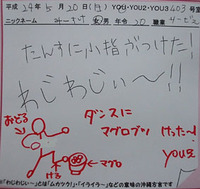 平成 24年 5月 20日(日) YOU・YOU2・YOU3 403号室
ニックネーム 女/男 年令 20 職業
たんすに小指ぶつけた!
わじわじぃ〜!!
おどる
ダンスに
マグロブツ けったー!
ける マグロ
YOU芝
※「わじわじぃ〜」とは「ムカツク!」・「イライラ〜」などの意味の沖縄方言です